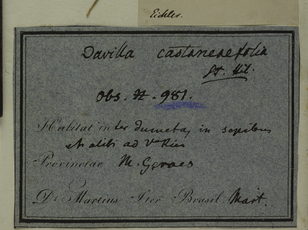 Eichler.
Davilla castaneaefolia
St. Hil.
Obs. N. 981.
Habitat inter dumeta, in sepibus
et alibi ad
Provinciae M. Geraes
Dr Martius Iter Brasil. Mart.